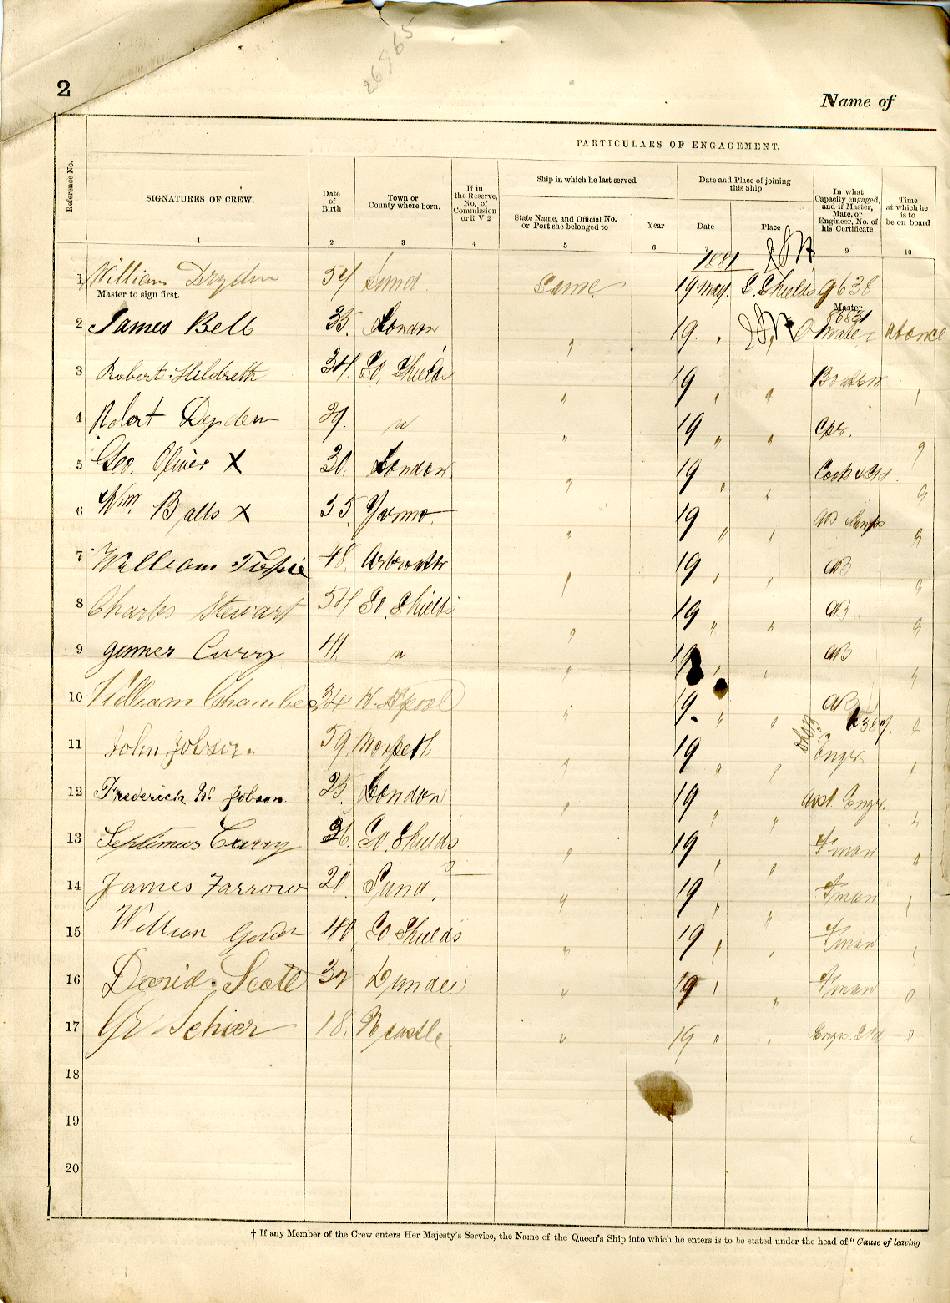 26965
2
Name of
PARTICULARS OF ENGAGEMENT.
Reference No.
SIGNATURES OF CREW.
Date of Birth
Town or County where born.
If in the Reserve, No. of Commission or R V 2
Ship in which he last served
State Name, and Official No. or Port she belonged to
Year
Date and Place of joining this ship
Date
Place
In what Capacity engaged, and if Master, Mate, or Engineer, No. of his Certificate
Time at which he is to be on board
1 2 3 4 5 6 9 10
1 William Dryden 54 Sund Same 19 May S. Shields 9638
Master to sign first. Master
2 James Bell 35 London " 19 " Mate
3 Robert Hildreth 34 So. Shields " 19 " " Boatsn "
4 Robert Dryden 39 " " 19 " " Cpr. "
5 Geo. Oliver X 30 London " 19 " " Cook "
6 Wm Balls X 35 Yarmo. " 19 " " AB Lamps "
7 William 48 " 19 " " AB "
8 Charles Stewart 54 So. Shields " 19 " " AB "
9 Curry " " 19 " " AB "
10 William Chambers 34 " 19 " " AB "
11 John Jobson. 59 Morpeth " 19 " " Engr. "
12 Frederick W. Jobson 25 London " 19 " " Asst. Engr. "
13 Septimus Curry 36 So. Shields " 19 " " F/man "
14 James Farrow 20 Sund. " 19 " " F/man "
15 William 40 So Shields " 19 " " F/man "
16 David Scott 32 Dundee " 19 " " F/man "
17 18. N castle " 19 " " "
18
19
20
† If any Member of the Crew enters Her Majesty's Service, the Name of the Queen's Ship into which he enters is to be stated under the head of "Cause of leaving